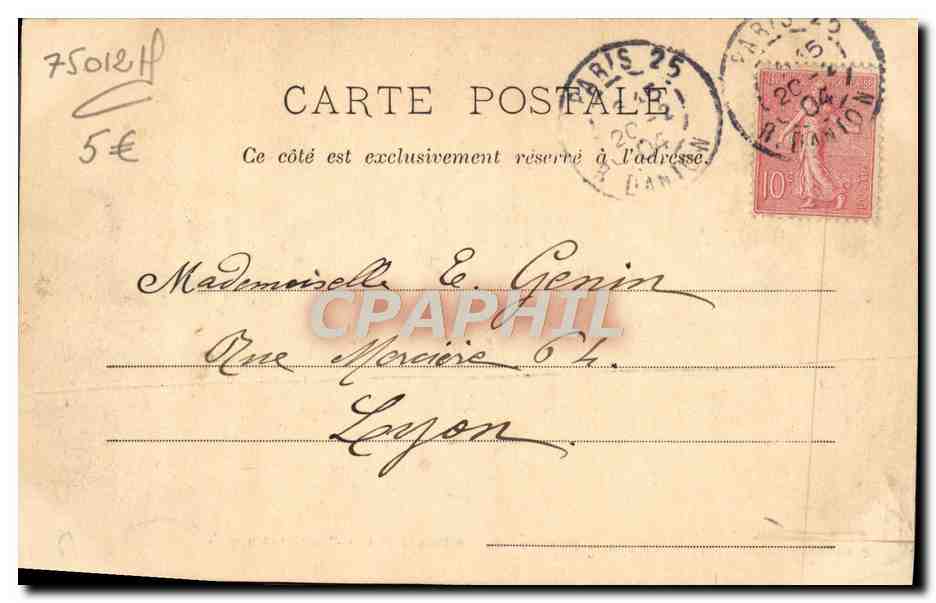 75012
5€
CARTE POSTALE
Ce côté est exclusivement réservé à l'adresse.
PARIS 25
20 -2
04
R. DANTON
PARIS 25
15
20 -2
04
R. DANTON
10c
Mademoiselle E. Genin
CPAPHIL
Rue Mercière 64.
Lyon